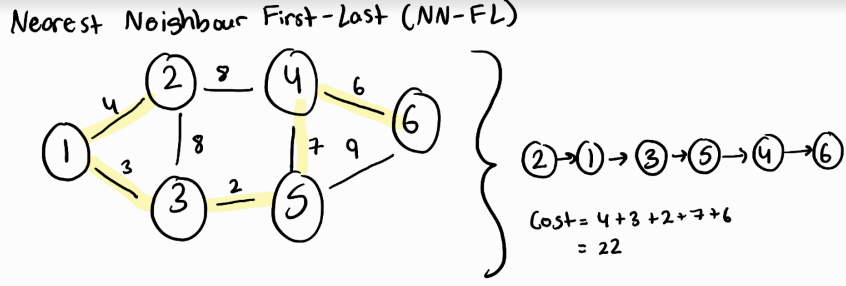 Nearest Neighbour First-Last (NN-FL)
2 8 4 6 6
4
1 8 7 9
3
3 2 5
2→1→3→5→4→6
Cost = 4+3+2+7+6
= 22